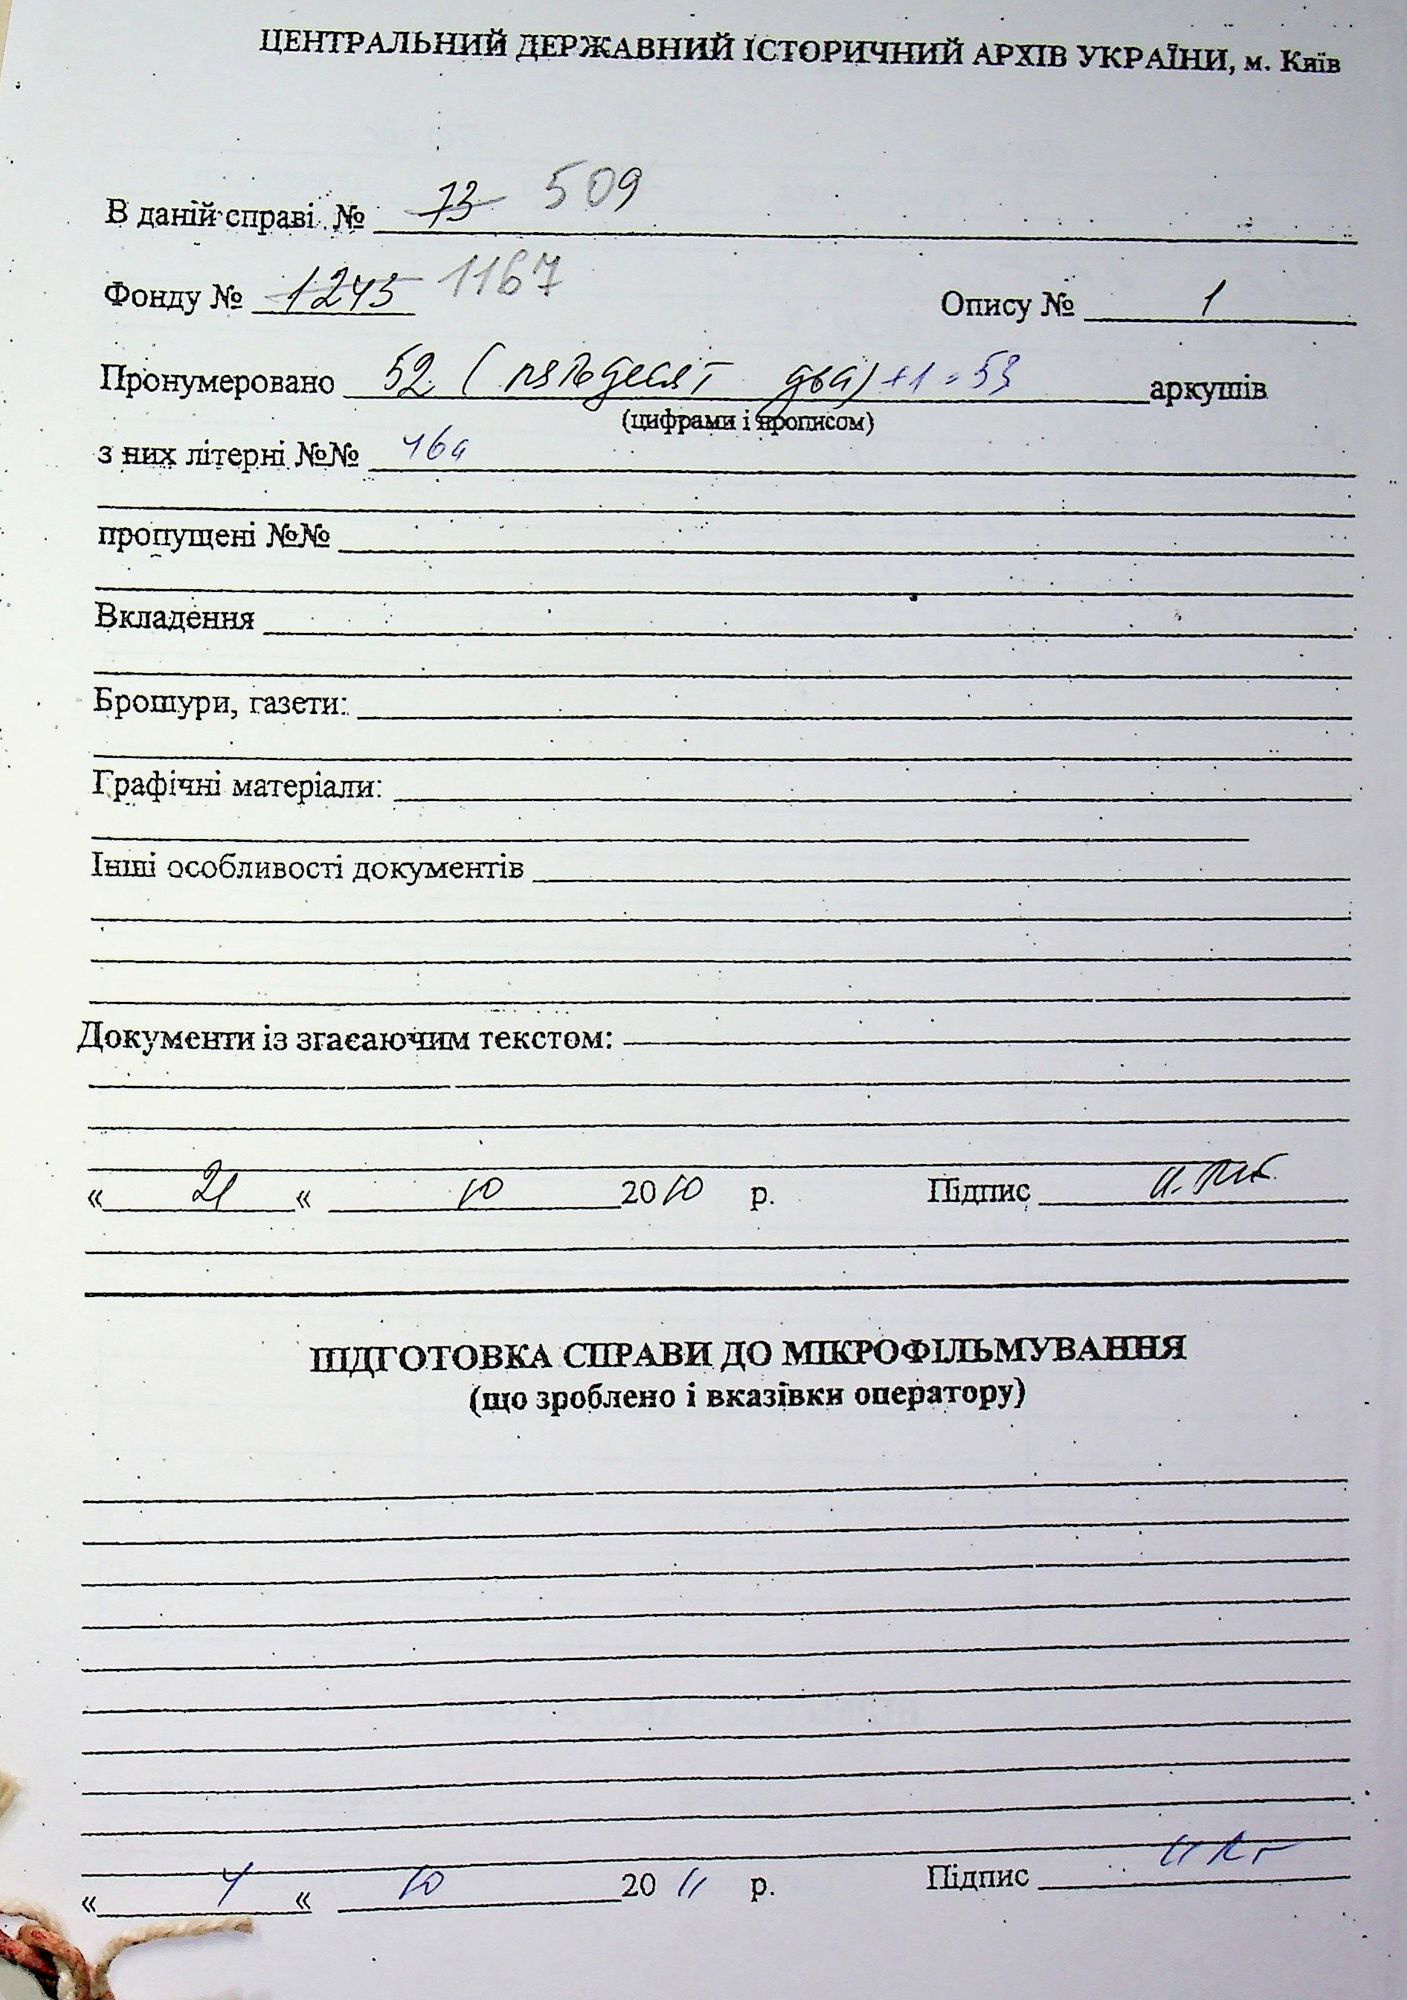 ЦЕНТРАЛЬНИЙ ДЕРЖАВНИЙ ІСТОРИЧНИЙ АРХІВ УКРАЇНИ, м. Київ
В даній справі № 73 509
Фонду № 1243 1167 Опису № 1
Пронумеровано 52 (пятьдесят два) +1=53 аркушів
(цифрами і прописом)
з них літерні №№ 16а
пропущені №№
Вкладення
Брошури, газети:
Графічні матеріали:
Інші особливості документів
Документи із згасаючим текстом:
« 21 « 10 2010 р. Підпис
ПІДГОТОВКА СПРАВИ ДО МІКРОФІЛЬМУВАННЯ
(що зроблено і вказівки оператору)
« 4 « 10 20 11 р. Підпис